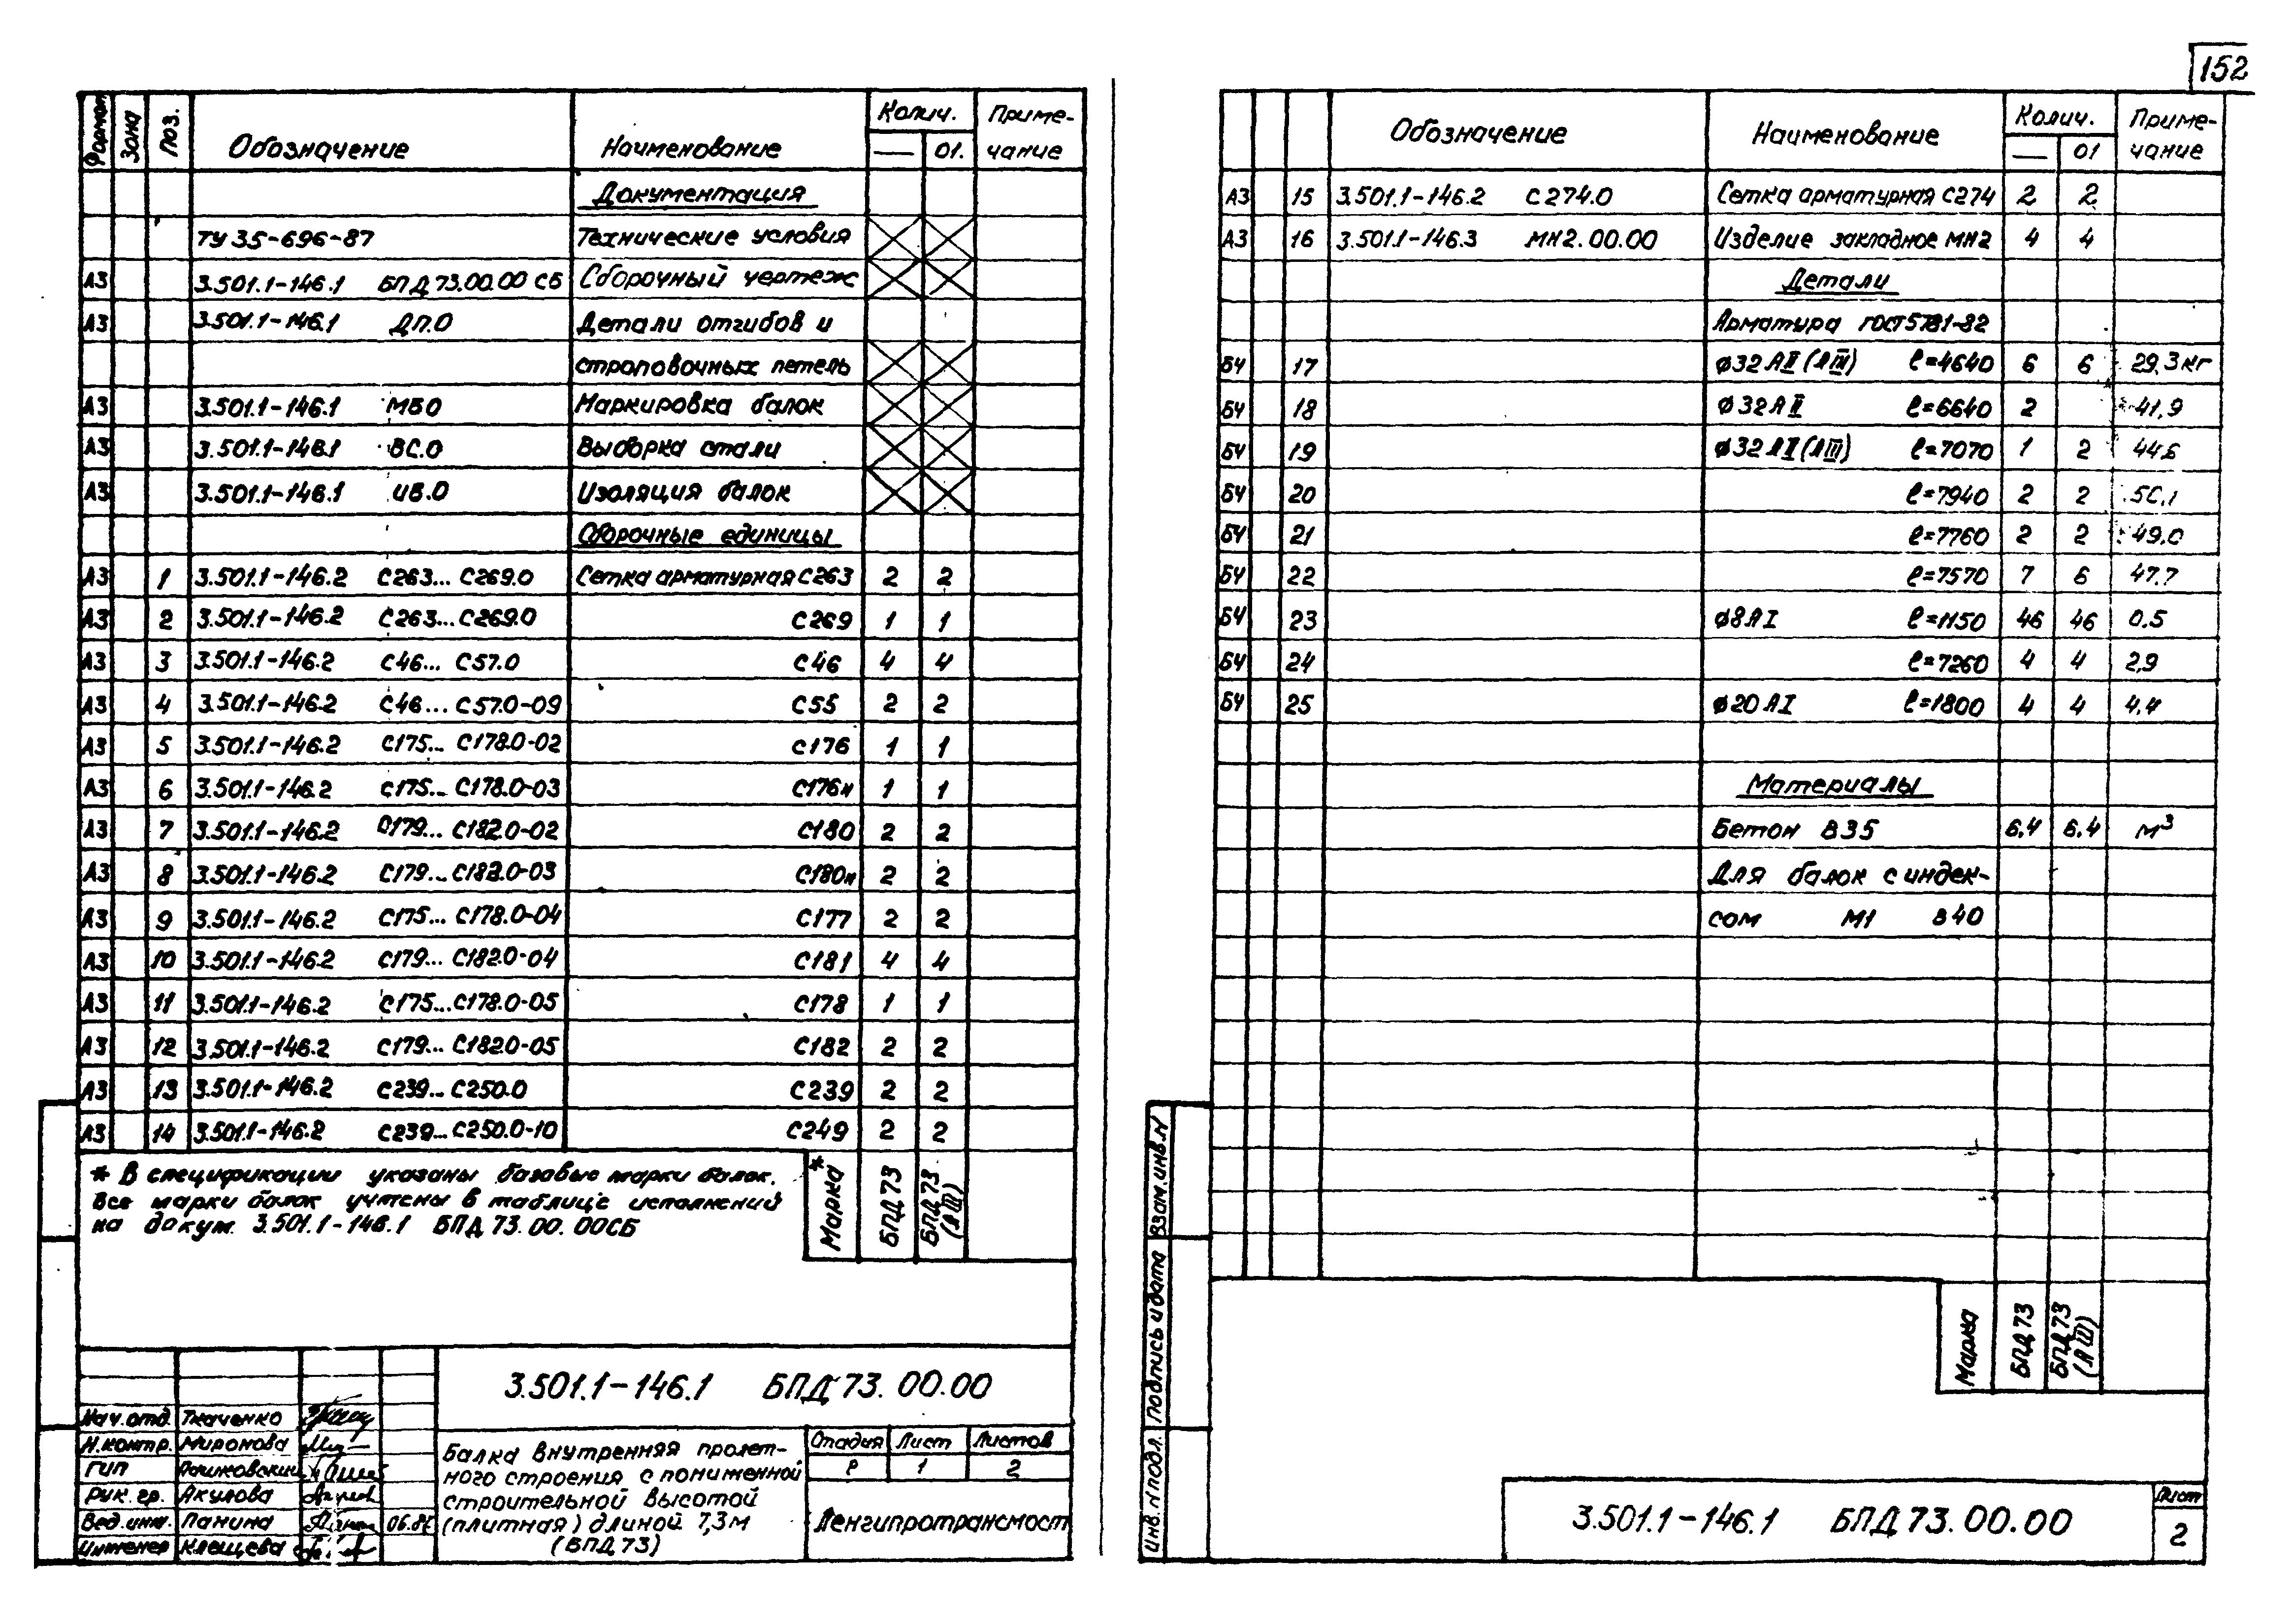 152
Формат Зона Поз. Обозначение Наименование Колич. Приме-
— 01. чание
Документация
ТУ 35-696-87 Технические условия
А3 3.501.1-146.1 БПД 73.00.00 СБ Сборочный чертеж
А3 3.501.1-146.1 ДП.0 Детали отгибов и
строповочных петель
А3 3.501.1-146.1 МБ0 Маркировка балок
А3 3.501.1-146.1 ВС.0 Выборка стали
А3 3.501.1-146.1 ИБ.0 Изоляция балок
Сборочные единицы
А3 1 3.501.1-146.2 С263... С269.0 Сетка арматурная С263 2 2
А3 2 3.501.1-146.2 С263... С269.0 С269 1 1
А3 3 3.501.1-146.2 С46... С57.0 С46 4 4
А3 4 3.501.1-146.2 С46... С57.0-09 С55 2 2
А3 5 3.501.1-146.2 С175... С178.0-02 С176 1 1
А3 6 3.501.1-146.2 С175... С178.0-03 С176н 1 1
А3 7 3.501.1-146.2 С179... С182.0-02 С180 2 2
А3 8 3.501.1-146.2 С179... С182.0-03 С180н 2 2
А3 9 3.501.1-146.2 С175... С178.0-04 С177 2 2
А3 10 3.501.1-146.2 С179... С182.0-04 С181 4 4
А3 11 3.501.1-146.2 С175... С178.0-05 С178 1 1
А3 12 3.501.1-146.2 С179... С182.0-05 С182 2 2
А3 13 3.501.1-146.2 С239... С250.0 С239 2 2
А3 14 3.501.1-146.2 С239... С250.0-10 С249 2 2
* В спецификации указаны базовые марки балок.
Все марки балок учтены в таблице исполнений
на докум. 3.501.1-146.1 БПД 73.00.00СБ
Марка* БПД 73 БПД 73 (АIII)
3.501.1-146.1 БПД 73.00.00
Нач.отд. Ткаченко
Н.контр. Миронова
ГИП
Рук. гр. Акулова
Вед.инж. Панина 06.87
Инженер Клещева
Балка внутренняя пролет-
ного строения с пониженной
строительной высотой
(плитная) длиной 7,3м
(БПД 73)
Стадия Лист Листов
Р 1 2
Ленгипротрансмост
Обозначение Наименование Колич. Приме-
— 01 чание
А3 15 3.501.1-146.2 С274.0 Сетка арматурная С274 2 2
А3 16 3.501.1-146.3 МН2.00.00 Изделие закладное МН2 4 4
Детали
Арматура ГОСТ 5781-82
БЧ 17 ø32 АII (АIII) ℓ=4640 6 6 29.3кг
БЧ 18 ø32 АII ℓ=6640 2 41,9
БЧ 19 ø32 АII (АIII) ℓ=7070 1 2 44,6
БЧ 20 ℓ=7940 2 2 50,1
БЧ 21 ℓ=7760 2 2 49.0
БЧ 22 ℓ=7570 7 6 47.7
БЧ 23 ø8 АI ℓ=1150 46 46 0.5
БЧ 24 ℓ=7260 4 4 2,9
БЧ 25 ø20 АI ℓ=1800 4 4 4.4
Материалы
Бетон В35 6,4 6,4 м³
Для балок с индек-
сом М1 В40
Марка БПД 73 БПД 73 (АIII)
Взам.инв.N
Подпись и дата
Инв. N подл.
3.501.1-146.1 БПД 73.00.00
Лист
2